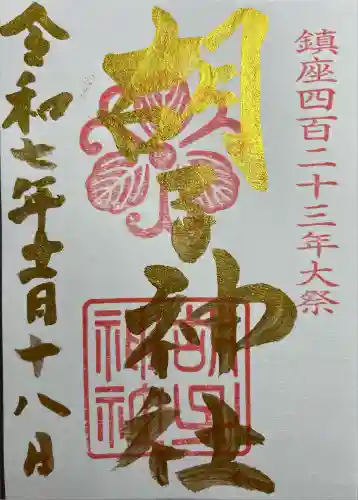 鎮座四百二十三年大祭
胡子神社
胡子
神社
令和七年十一月十八日